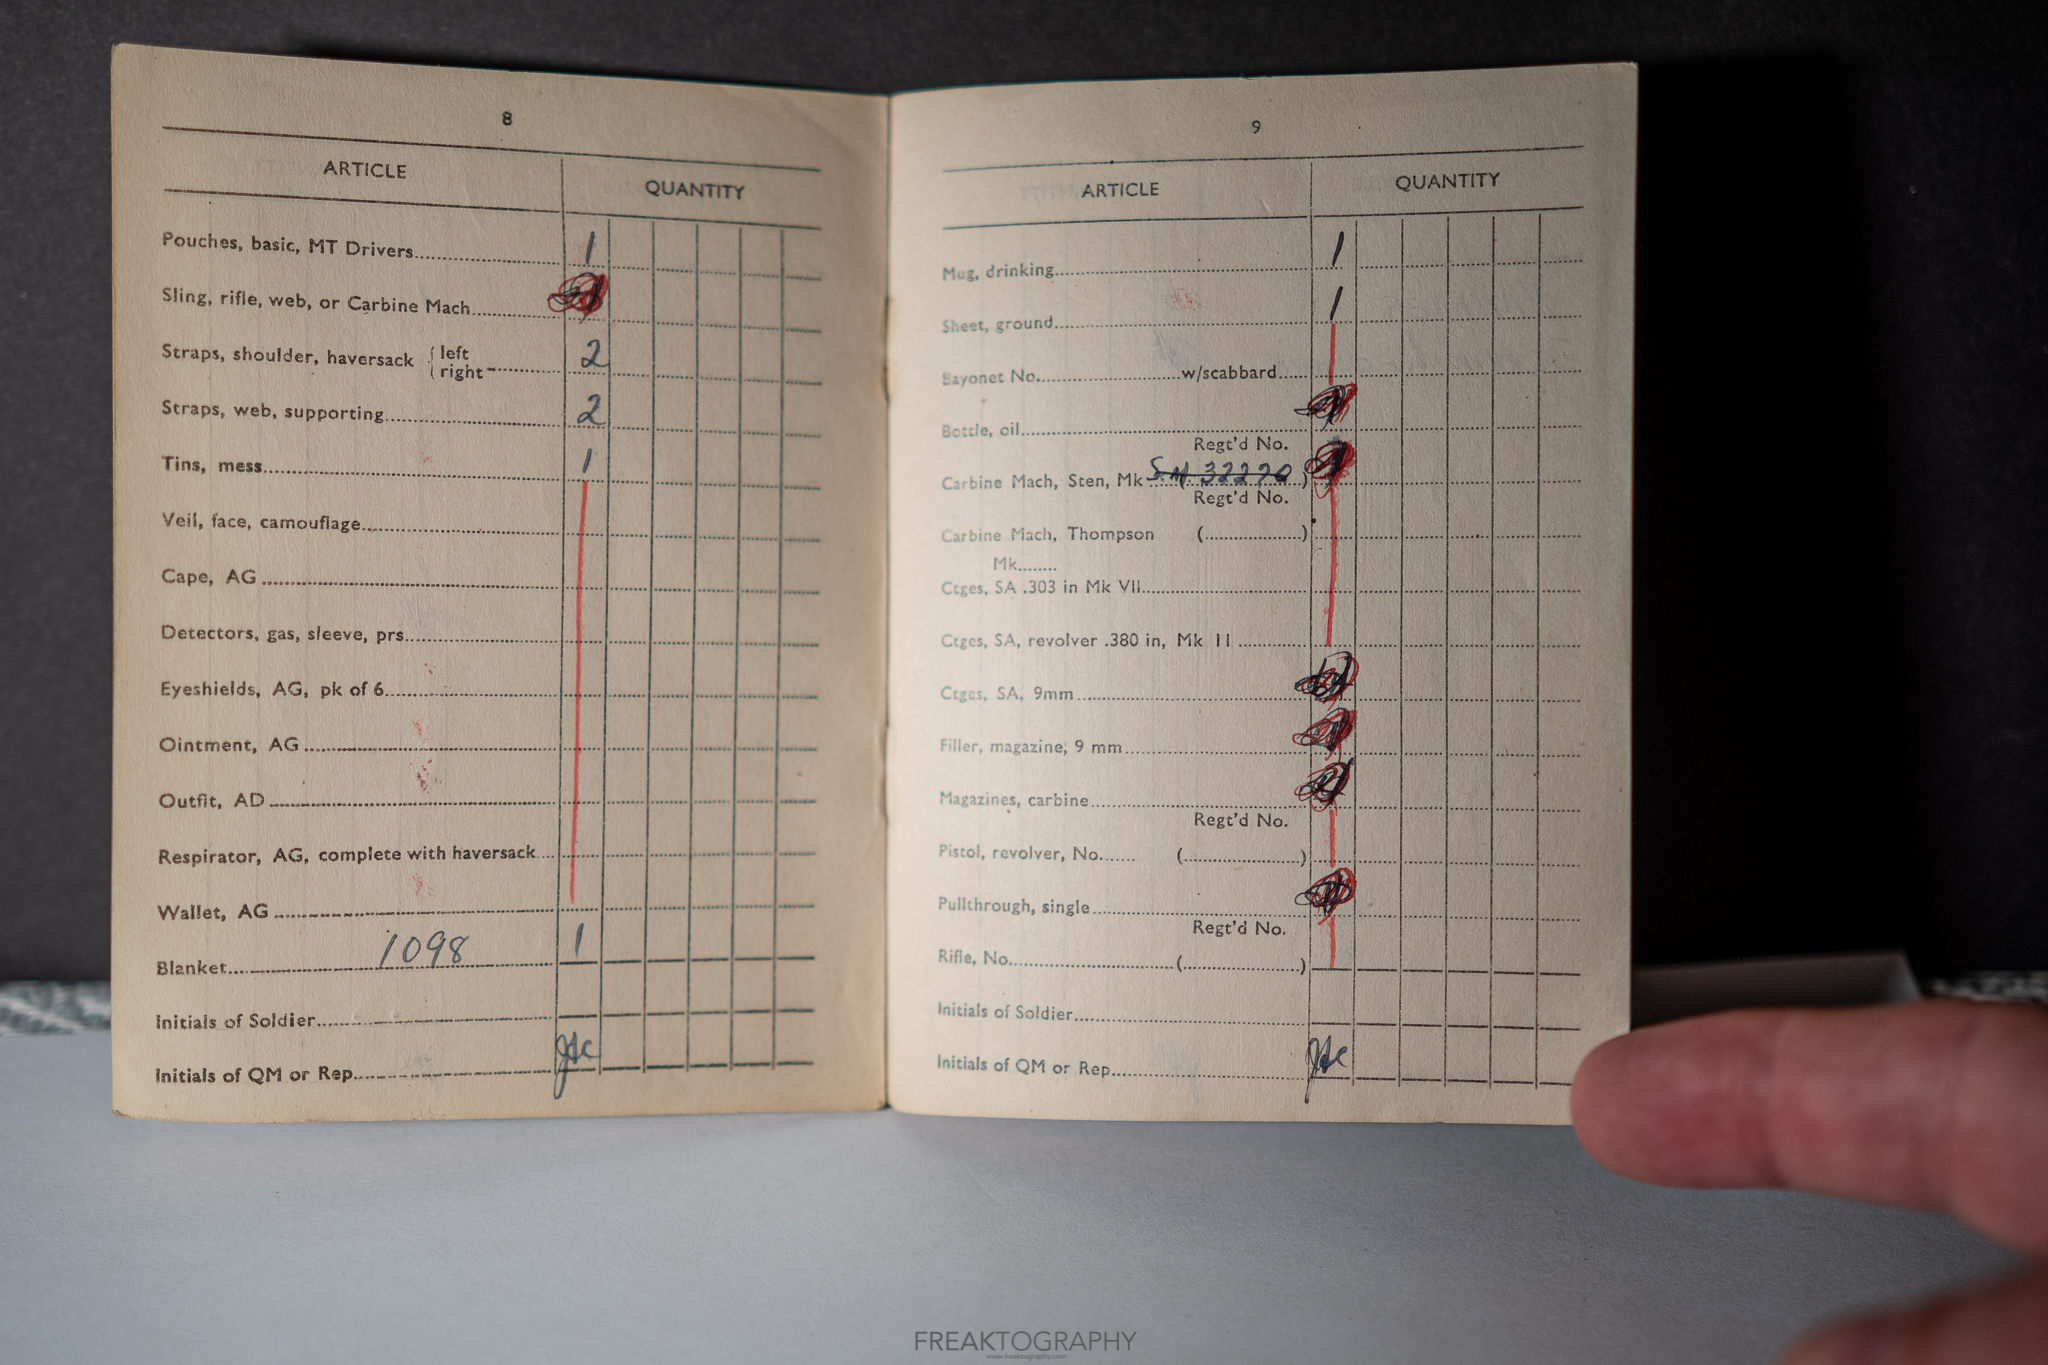 8
ARTICLE QUANTITY
Pouches, basic, MT Drivers 1
Sling, rifle, web, or Carbine Mach
Straps, shoulder, haversack { left
right 2
Straps, web, supporting 2
Tins, mess 1
Veil, face, camouflage
Cape, AG
Detectors, gas, sleeve, prs.
Eyeshields, AG, pk of 6
Ointment, AG
Outfit, AD
Respirator, AG, complete with haversack
Wallet, AG
Blanket 1098 1
Initials of Soldier
Initials of QM or Rep
9
ARTICLE QUANTITY
Mug, drinking 1
Sheet, ground 1
Bayonet No. w/scabbard
Bottle, oil
Regt'd No.
Carbine Mach, Sten, Mk 32270 )
Regt'd No.
Carbine Mach, Thompson ( )
Mk
Ctges, SA .303 in Mk VII
Ctges, SA, revolver .380 in, Mk II
Ctges, SA, 9mm
Filler, magazine, 9 mm
Magazines, carbine
Regt'd No.
Pistol, revolver, No. ( )
Pullthrough, single
Regt'd No.
Rifle, No. ( )
Initials of Soldier
Initials of QM or Rep
FREAKTOGRAPHY
www.freaktography.com